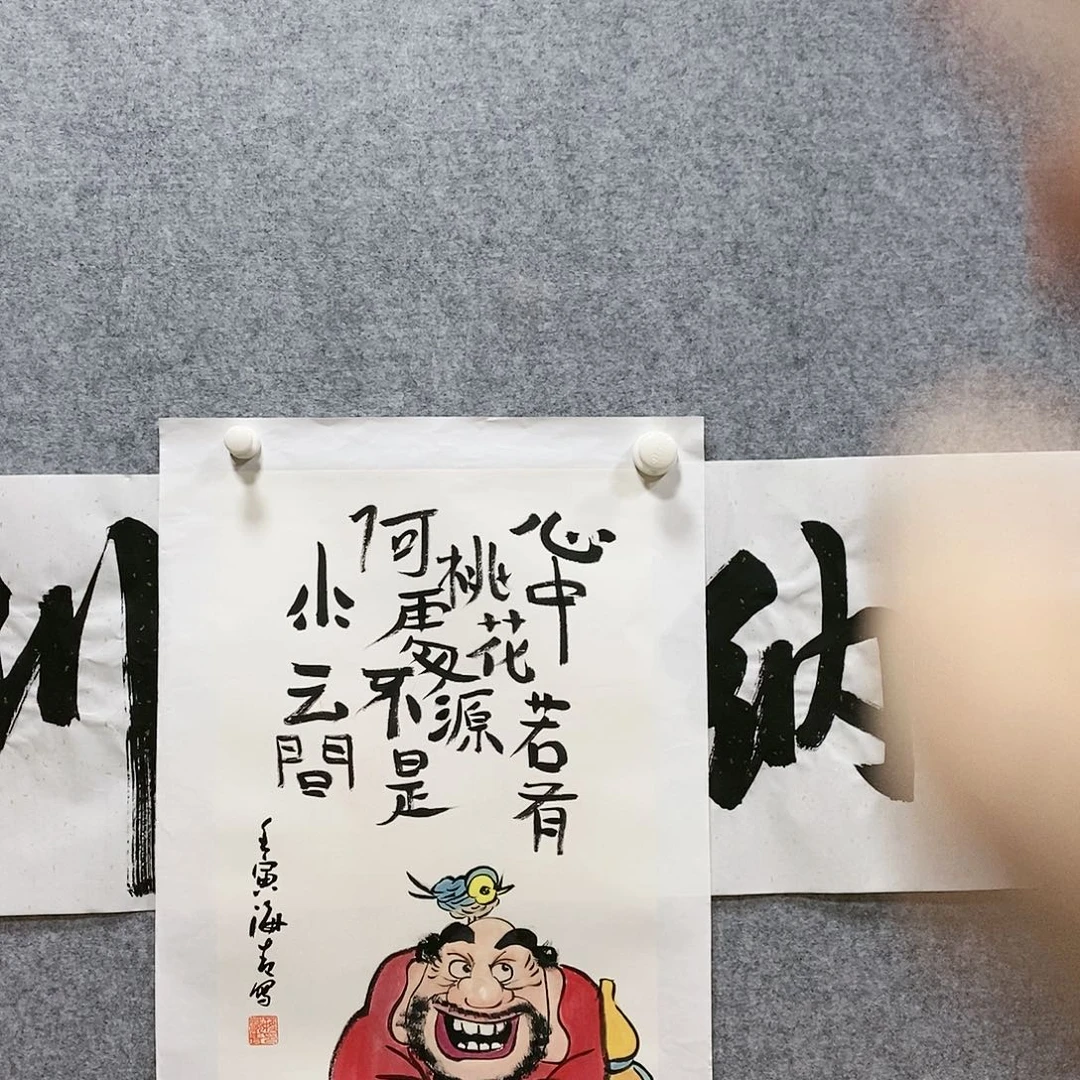 纳
川
心中若有
桃花源
何處不是
水云間
壬寅海青寫